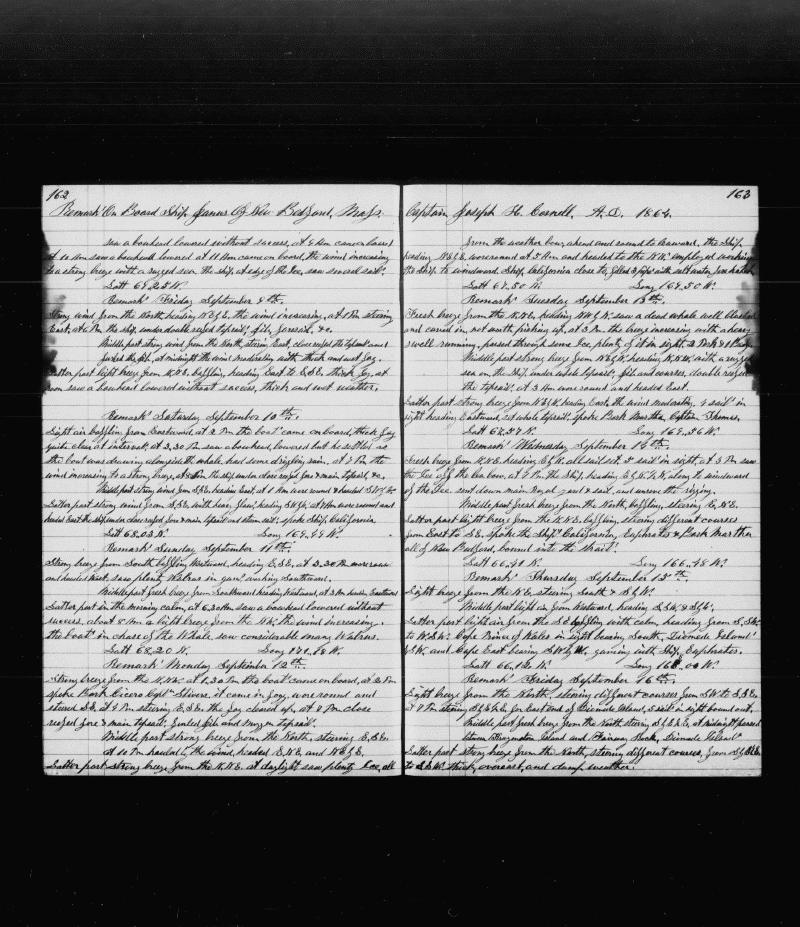 162
Remark' On Board Ship Janus Of New Bedford, Mass.
saw a bowhead lowered without success, at 9 Am came on board
at 10 Am saw a bowhead lowered at 11 Am came on board, the wind increasing
to a strong breeze with a rugged sea the ship at edge of the Ice, saw several sail.
Latt 69,25 N.
Remark' Friday September 9th.
Strong wind from the North, heading the wind increasing, at 1 Pm steering
East, at 6 Pm the ship under double reefed topsail', jib, foresail, &c.
Middle part strong wind from the North, steering East, close reefed the topsail and
furled the jib, at midnight the wind moderating with thick and wet fog.
Latter part light breeze from N.N.E. baffling, heading East to E.S.E. thick fog, at
noon saw a bowhead lowered without success, thick and wet weather.
Remark' Saturday September 10th.
Light air baffling from Eastward, at 2 Pm the boat' came on board, thick fog
quite clear at interval', at 3,30 Pm saw a bowhead, lowered but he settled as
the boat was drawing alongside the whale, had some drizzling rain, at 7 Pm the
wind increasing to a strong breeze, at Pm the ship under close reefed fore & main topsail, &c.
Middle part strong wind from S.S.E. heading East, at 1 Am wore round & headed S.W by W.
Latter part strong wind from S.S.E. with heavy heading S.W by W. at 9 Am wore round and
headed East the ship under close reefed fore & main topsail and stem sail. spoke Ship California
Latt 68.03 N. Long 169.49 W.
Remark' Sunday September 11th.
Strong breeze from South baffling Westward, heading E.S.E. at 2.30 Pm wore round
and headed West. saw plenty Walrus in gam' working Southward.
Middle part fresh breeze from Southward heading Westward, at 3 Am heading Eastward
Latter part in the morning calm, at 6.30 Am saw a bowhead lowered without
success, about 8 Am a light breeze from the N.W. the wind increasing.
the boat' in chase of the Whale. saw considerable many Walrus.
Latt 68.20 N. Long 170,48 W.
Remark' Monday September 12th.
Strong breeze from the N.N.W. at 1.30 Pm the boat' came on board, at 2 Pm
spoke Bark Cicero Capt Stivers, it came in foggy, wore round and
steered S.E. at 4 Pm steering E.S.E. the fog closed up, at 7 Pm close
reefed fore & main topsail', furled jib and mizzen topsail.
Middle part strong breeze from the North, steering E.S.E.
at 10 Pm hauled the wind, headed E.N.E. and N.E by E.
Latter part strong breeze from the N.N.E. at daylight saw plenty Ice, all
163
Captain Joseph H. Cornell. A.D. 1864.
from the weather bow, ahead and round to leeward, the Ship
heading N.E by E, wore round at 5 Am and headed to the N.W. employed working
the Ship to windward. Ship California close to, filled 3 pipe' with salt water,
Latt 67.50 N. Long 167.50 W.
Remark' Tuesday September 13th.
Fresh breeze from the N.N.E. heading N.W by N. saw a dead whale well blasted
and carried in, not worth picking up, at 3 Pm. the breeze increasing with a heavy
swell running, passed through some Ice, plenty of it in sight,
Middle part strong breeze from N.E by N, heading N.N.W. with a rugged
sea on the Ship, under whole topsail', jib and courses, double reefed
the topsail', at 3 Am wore round and headed East.
Latter part strong breeze from N.E by N, heading East the wind moderating, 4 sail' in
sight heading Eastward, set whole topsail'. spoke Bark Martha, Captain Thomas,
Latt 67,37 N. Long 167.36 W.
Remark' Wednesday September 14th.
Fresh breeze from N.N.E. heading E by N. all sail set. 5 sail in sight, at 3 Pm saw
the Ice off the lee bow, at 7 Pm the Ship, heading E by N. along to windward
of the Ice. sent down main Royal yard & sail. and unrove the rigging.
Middle part fresh breeze from the North, baffling, steering E.N.E.
Latter part light breeze from the N.N.E. baffling, steering different courses
from East to S.E. spoke the Ship' California, Euphrates & Bark Martha
all of New Bedford, bound into the Strait.
Latt 66,49 N. Long 166.48 W.
Remark' Thursday September 15th.
Light breeze from the N.E. steering South & S by W.
Middle part light air from Westward, heading S.S.W. & S by W.
Latter part light air from the S.E. baffling with calm, heading from S.S.W.
to W.S.W. Cape Prince of Wales in sight bearing South, Diomede Island'
S.W. and Cape East bearing S.W by W. gaming with Ship Euphrates.
Latt 66,12 N. Long 168.00 W.
Remark' Friday September 16th.
Light breeze from the North, steering different courses from S.W to S.S.E.
at 7 Pm steering S by E½E. for East end of Diomede Island, 5 sail in sight bound out.
Middle part fresh breeze from the North, steering S by E½E. at midnight passed
between Krusenstern Island and Fairway Rock, Diomede Island'
Latter part strong breeze from the North, steering different courses, from S by
to S.S.W. thick, overcast, and damp weather.